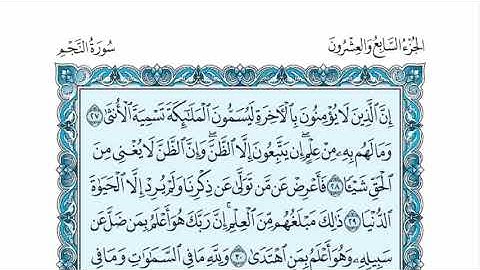 سُورَةُ النَّجْمِ
الجُزْءُ السَّابِعُ وَالعِشْرُونَ
إِنَّ الَّذِينَ لَا يُؤْمِنُونَ بِالْآخِرَةِ لَيُسَمُّونَ الْمَلَائِكَةَ تَسْمِيَةَ الْأُنثَىٰ ٢٧
وَمَا لَهُم بِهِ مِنْ عِلْمٍ ۖ إِن يَتَّبِعُونَ إِلَّا الظَّنَّ ۖ وَإِنَّ الظَّنَّ لَا يُغْنِي مِنَ
الْحَقِّ شَيْئًا ٢٨ فَأَعْرِضْ عَن مَّن تَوَلَّىٰ عَن ذِكْرِنَا وَلَمْ يُرِدْ إِلَّا الْحَيَوٰةَ
الدُّنْيَا ٢٩ ذَٰلِكَ مَبْلَغُهُم مِّنَ الْعِلْمِ ۚ إِنَّ رَبَّكَ هُوَ أَعْلَمُ بِمَن ضَلَّ عَن
سَبِيلِهِ وَهُوَ أَعْلَمُ بِمَنِ اهْتَدَىٰ ٣٠ وَلِلَّهِ مَا فِي السَّمَٰوَٰتِ وَمَا فِي